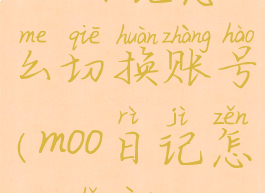 me qiē huàn zhàng hào
么切换账号
rì jì zěn
(moo日记怎